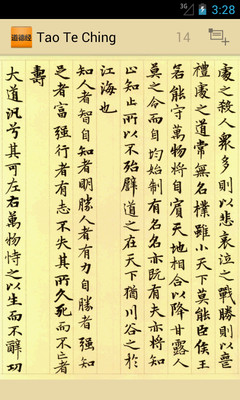 3G 3:28
道德经 Tao Te Ching 14
處之殺人衆多則以悲哀泣之戰勝則以喪
禮處之道常無名樸雖小天下莫能臣侯王
若能守萬物將自賓天地相合以降甘露人
莫之令而自均始制有名名亦既有夫亦將知
止知止所以不殆譬道之在天下猶川谷之於
江海也
知人者智自知者明勝人者有力自勝者强知
足者富强行者有志不失其所久死而不亡者
壽
大道汎兮其可左右萬物恃之以生而不辭功